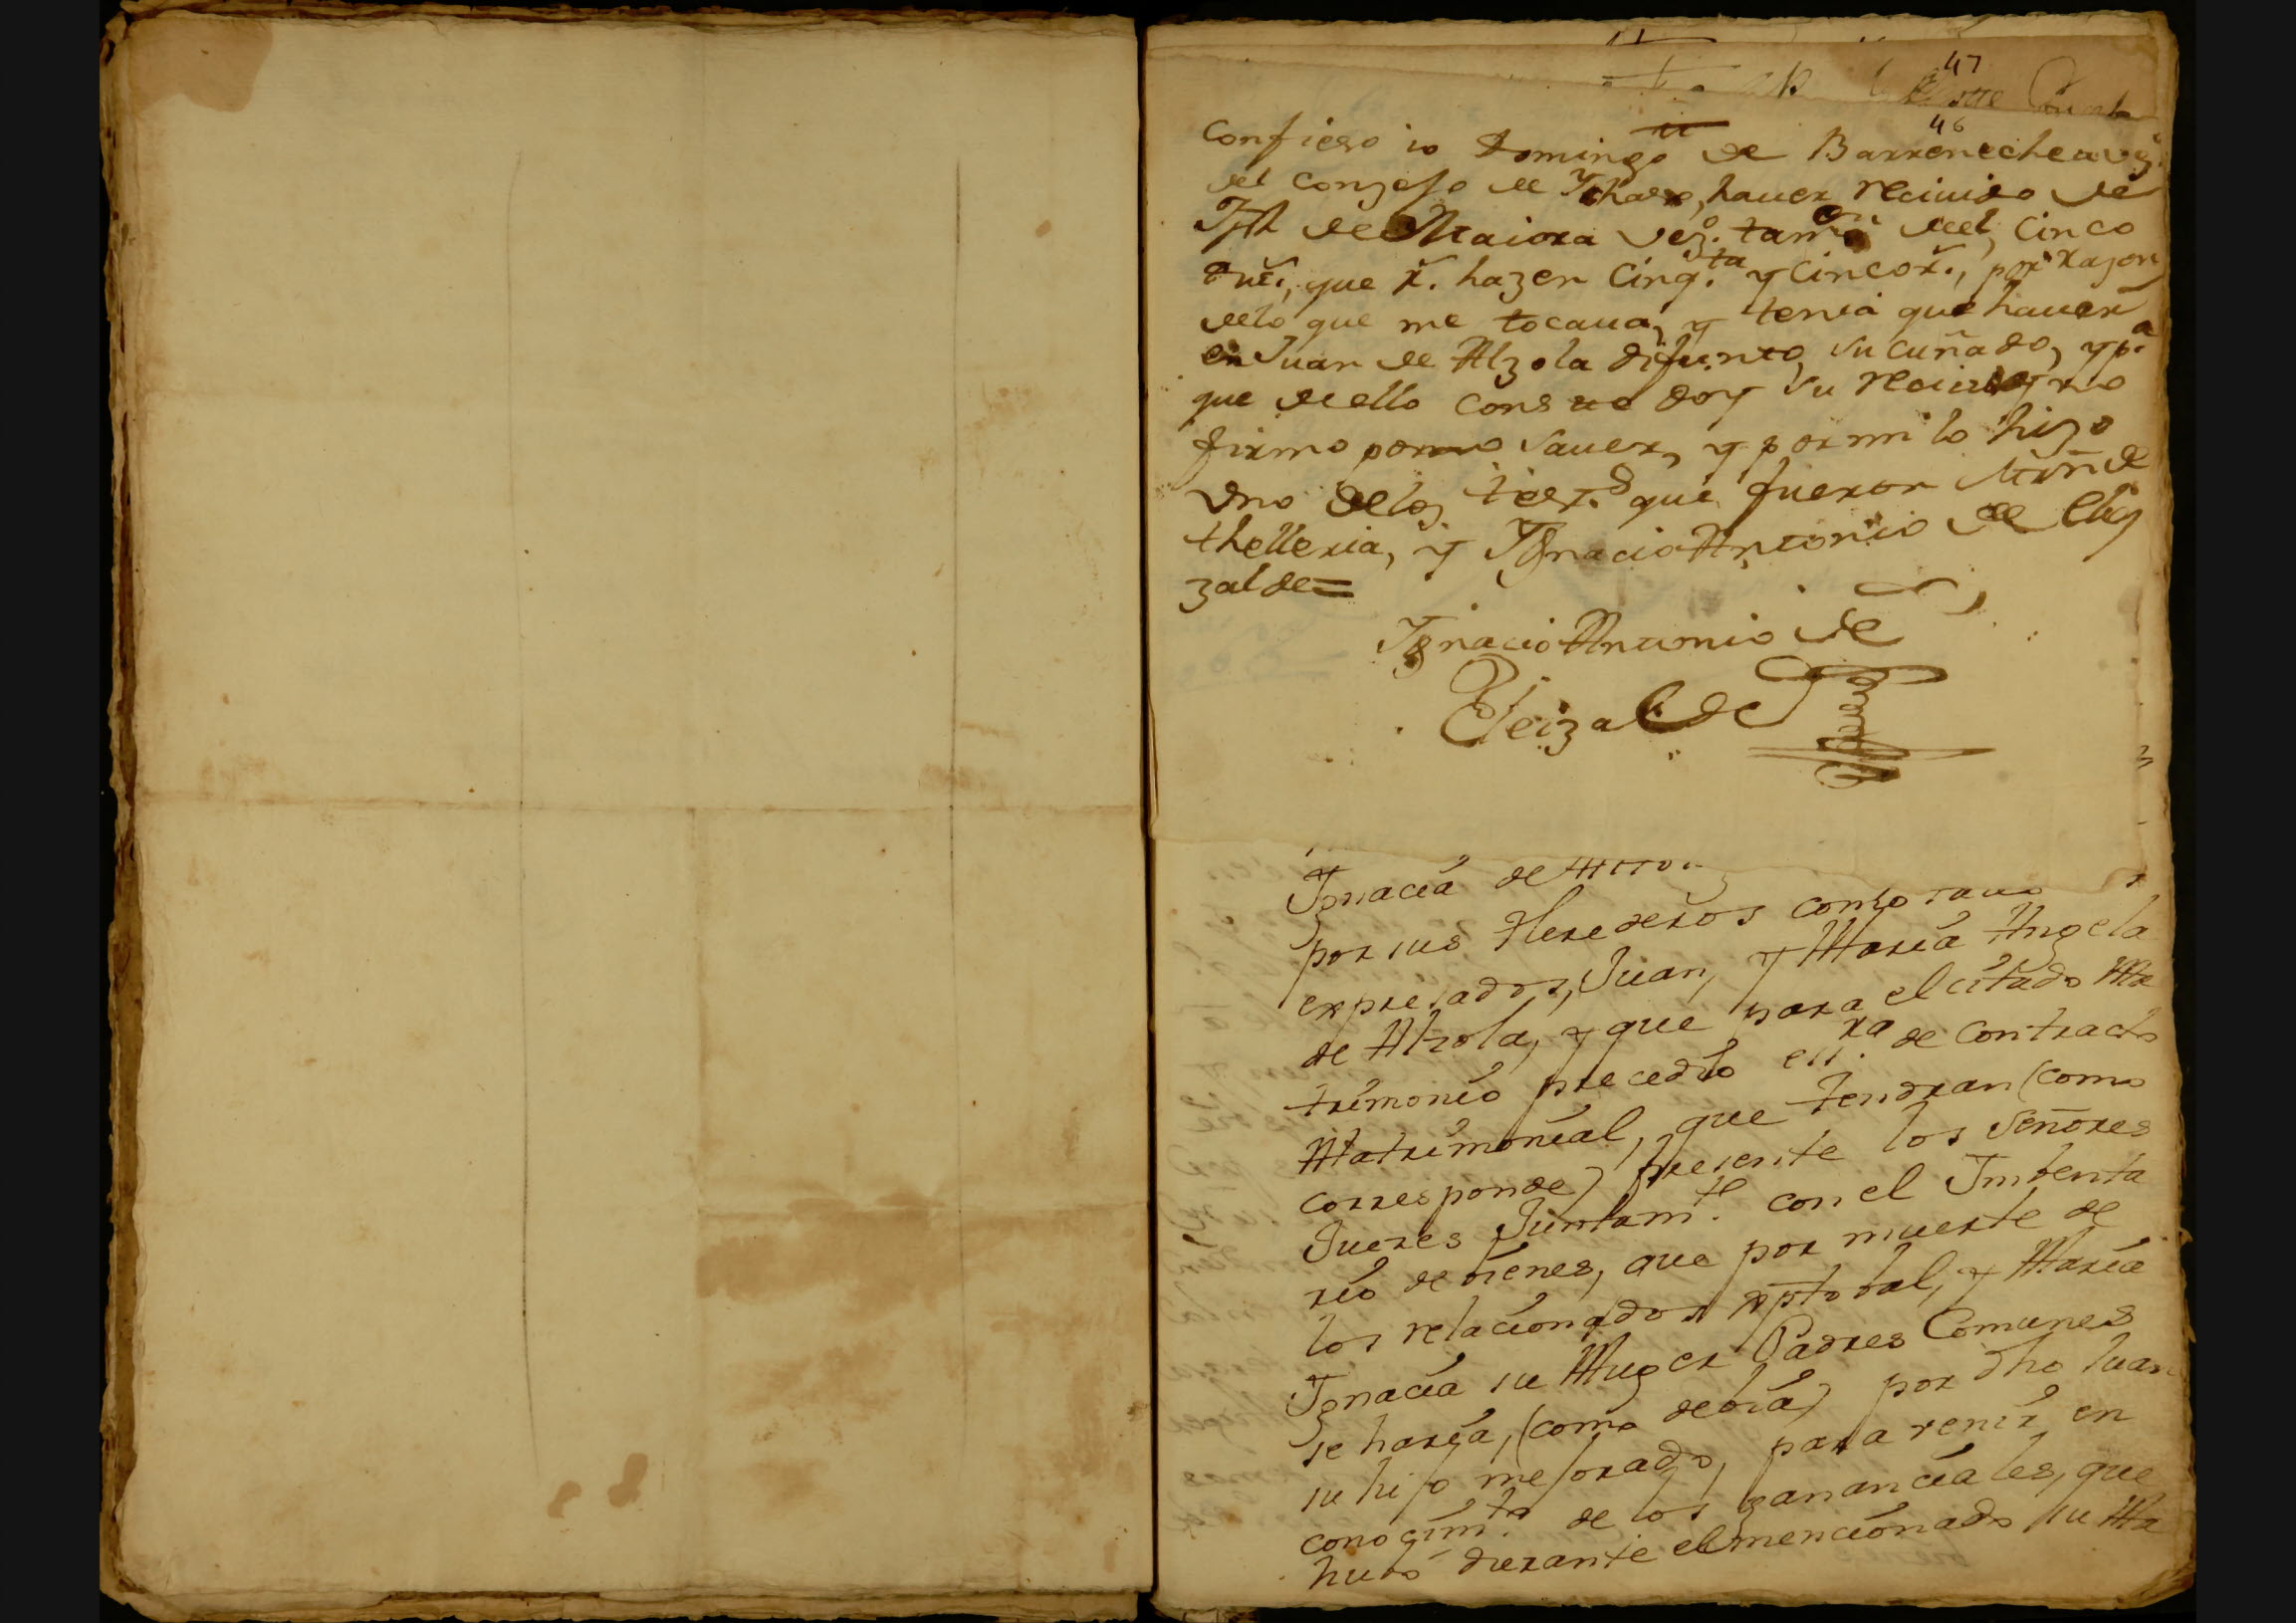 47
46
Confieso io Domingo de Barrenechea vez.º
del conzejo de Ychaso, hauer reciuido de
de Maiora vez.º tamẽ del, cinco
que r.s hazen cinq.ta y cinco r.s, por razon
delo que me tocaua, y tenia que hauer
en Juan de Alzola difunto, su cuñado, y p.a
que de ello conste doy su reciuo, y no
firmo por no sauer, y por mi lo hizo
vno delos test.s que fueron Mrñ de
thelleria, y Ygnacio Antonio de Elei
zalde=
Ygnacio Antonio de
Eleizalde
Ygnacia de
por sus Herederos como tales
expresados, Juan, y Maria Angela
de Alzola, y que para el citado Ma
trimonio precedio ess.ra de Contracto
Matrimonial, que tendran (como
corresponde) presente los Señores
Juezes Juntam.te con el Imbenta
rio de vienes, que por muerte de
los relacionados xptobal, y Maria
Ygnacia su Muger Padres Comunes
se haria, (como debia) por dho Juan
su hijo mejorado, para venir en
conocim.to de los gananciales, que
hubo durante el mencionado su Ma